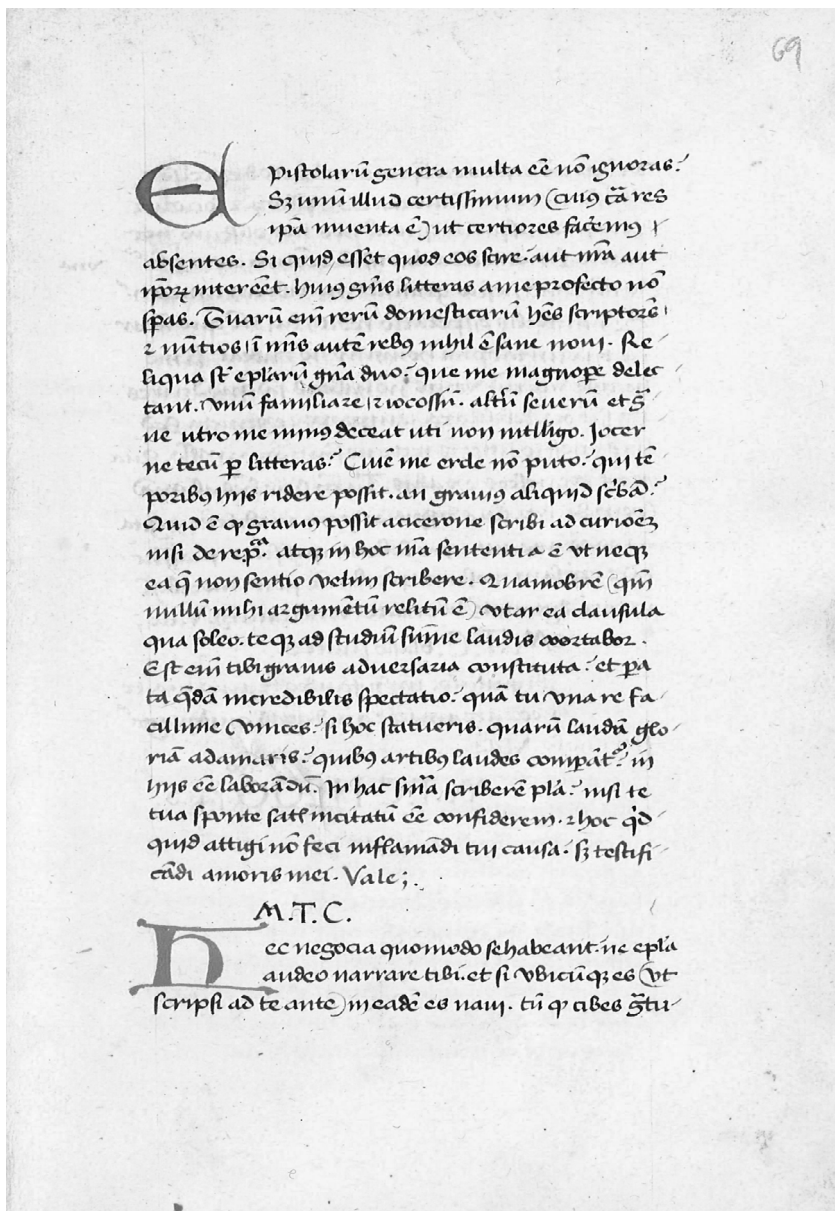 69
Epistolarū genera multa eē nō ignoras.
Sꝫ unū illud certissimum (cuiꝰ cā res
ipā inventa ē) ut certiores facēmꝰ
absentes. Si quid esset quod eos scire. aut nrā aut
ipōꝝ intereēt. huiꝰ gnīs litteras a me profecto nō
spas. Tuarū enī rerū domesticarū hēs scriptorēs
⁊ nūtios. ī mīs autē rebꝰ nihil ē sane novi. Re
liqua st̄ eplarū gnā duo. que me magnope delec
tant. unū familiare ⁊ iocossū. altīū severū et gͣ
ve utro me minꝰ deceat uti non intlligo. Jocer
ne tecū p litteras? Civē me ercle nō puto. qui tē
poribꝰ hiis ridere possit. an graviꝰ aliquid scͥbā?
Quid ē qͥ graviꝰ possit a cicerone scribi ad curionēꝫ
nisi de rep.ͣ atqꝫ in hoc mā sententia ē ut neqꝫ
ea q̄ non sentio velim scribere. Quamobrē (qm̄
nullū mihi argumētū relitū ē) utar ea clausula
qua soleo. te qꝫ ad studiū sūme laudis coortabor.
Est enī tibi gravis adversaria constituta. et pa
ta q̄dā incredibilis spectatio. quā tu una re fa
cillime vinces. si hoc statueris. quarū laudā glo
riā adamaris. quibꝰ artibꝰ laudes compāt᷒. in
hiis eē laborādū. In hac sinīa scriberē plā. nisi te
tua sponte satꝭ incitatū eē confiderem. ⁊ hoc qͥd
quid attigi nō feci inflamādi tui causa. sꝫ testifi
cādi amoris mei. Vale;.
M.T.C.
Hec negocia quomodo se habeant. ne eplā
audeo narrare tibi. et si ubicūqꝫ es (ut
scripsi ad te ante) in eadē es navi. tū qͥ cibes gͣtu